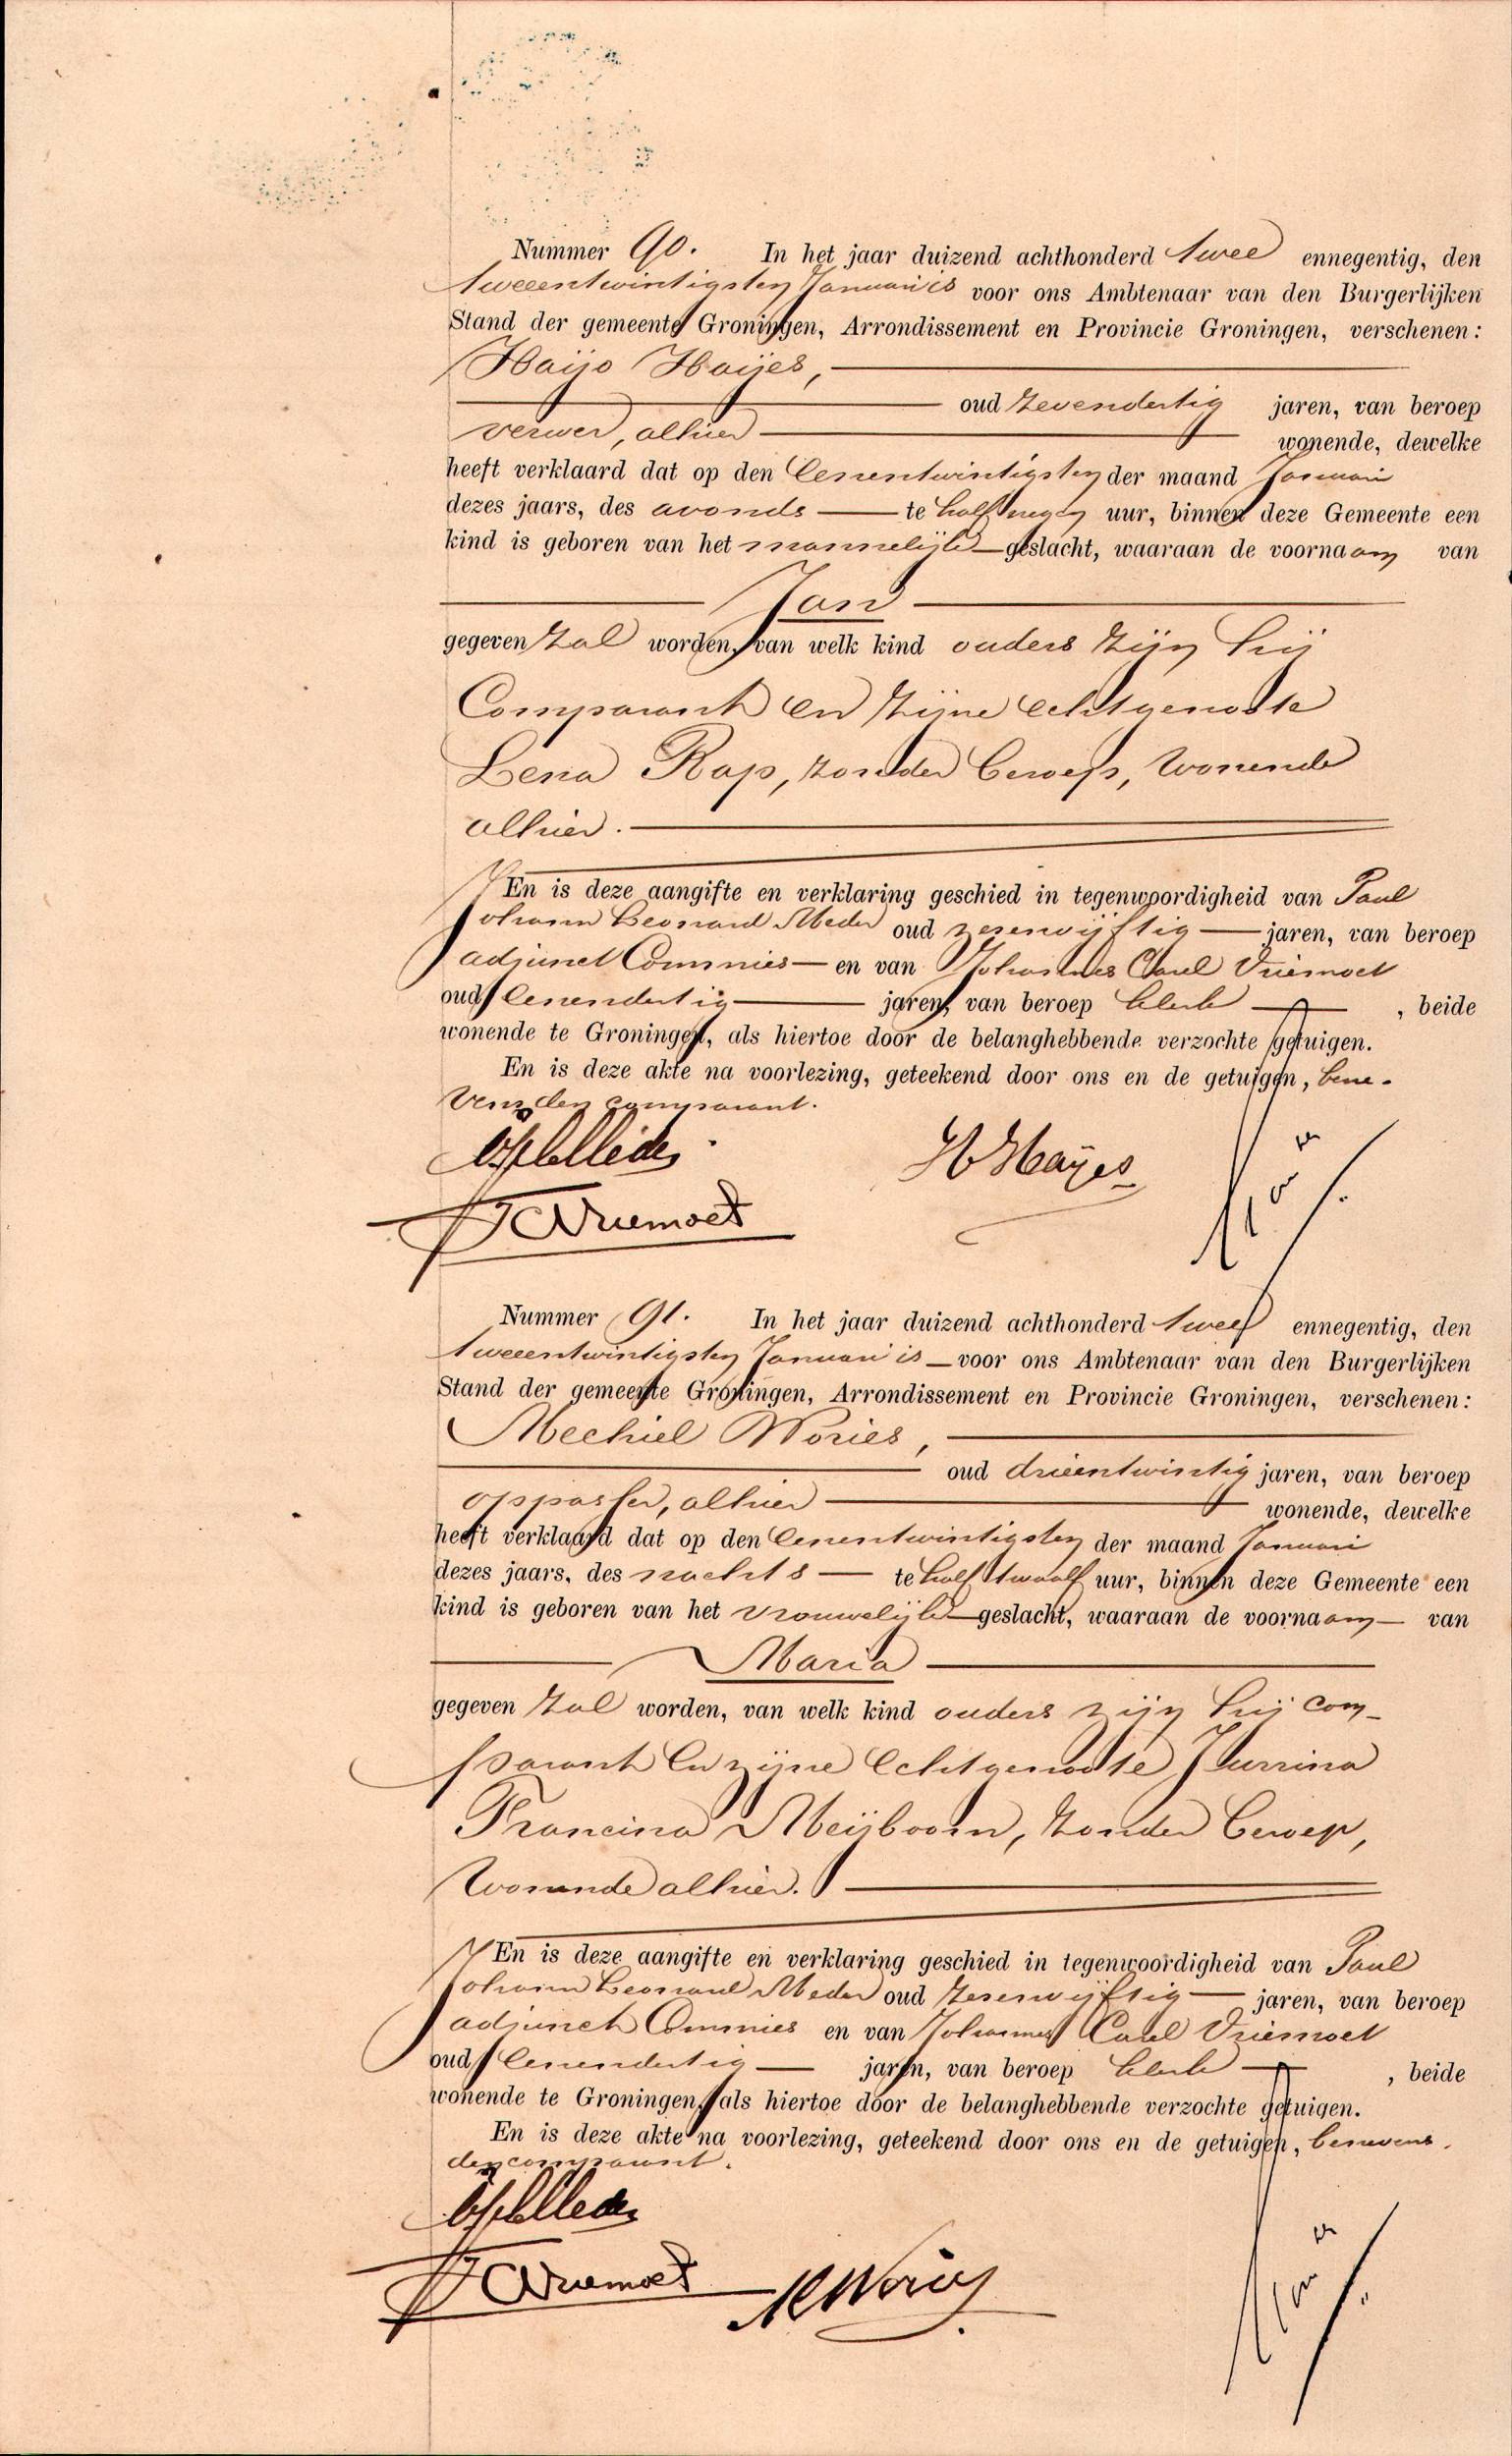 Nummer 90. In het jaar duizend achthonderd twee ennegentig, den
tweeentwintigsten Januari is voor ons Ambtenaar van den Burgerlijken
Stand der gemeente Groningen, Arrondissement en Provincie Groningen, verschenen:
Haijo Haijes,
oud zevendertig jaren, van beroep
verwer, alhier wonende, dewelke
heeft verklaard dat op den eenentwintigsten der maand Januari
dezes jaars, des avonds te half negen uur, binnen deze Gemeente een
kind is geboren van het mannelijk geslacht, waaraan de voornaam van
Jan
gegeven zal worden, van welk kind ouders zijn hij
Comparant en zijne echtgenoote
Lena Rap, zonder beroep, wonende
alhier.
En is deze aangifte en verklaring geschied in tegenwoordigheid van Paul
Johann Leonard Meder oud zesenvijftig jaren, van beroep
adjunct Commies en van Johannes Carel Vriemoet
oud eenendertig jaren, van beroep klerk, beide
wonende te Groningen, als hiertoe door de belanghebbende verzochte getuigen.
En is deze akte na voorlezing, geteekend door ons en de getuigen, bene-
vens den comparant.
H Hayes
JCVriemoet
Nummer 91. In het jaar duizend achthonderd twee ennegentig, den
tweeentwintigsten Januari is voor ons Ambtenaar van den Burgerlijken
Stand der gemeente Groningen, Arrondissement en Provincie Groningen, verschenen:
Mechiel Wories,
oud drieentwintig jaren, van beroep
oppasser, alhier wonende, dewelke
heeft verklaard dat op den eenentwintigsten der maand Januari
dezes jaars, des nachts te half twaalf uur, binnen deze Gemeente een
kind is geboren van het vrouwelijk geslacht, waaraan de voornaam van
Maria
gegeven zal worden, van welk kind ouders zijn hij com-
parant en zijne echtgenoote Jurrina
Francina Meijboom, zonder beroep,
wonende alhier.
En is deze aangifte en verklaring geschied in tegenwoordigheid van Paul
Johann Leonard Meder oud zesenvijftig jaren, van beroep
adjunct Commies en van Johannes Carel Vriemoet
oud eenendertig jaren, van beroep klerk, beide
wonende te Groningen, als hiertoe door de belanghebbende verzochte getuigen.
En is deze akte na voorlezing, geteekend door ons en de getuigen, benevens
den comparant.
JCVriemoet
M Wories